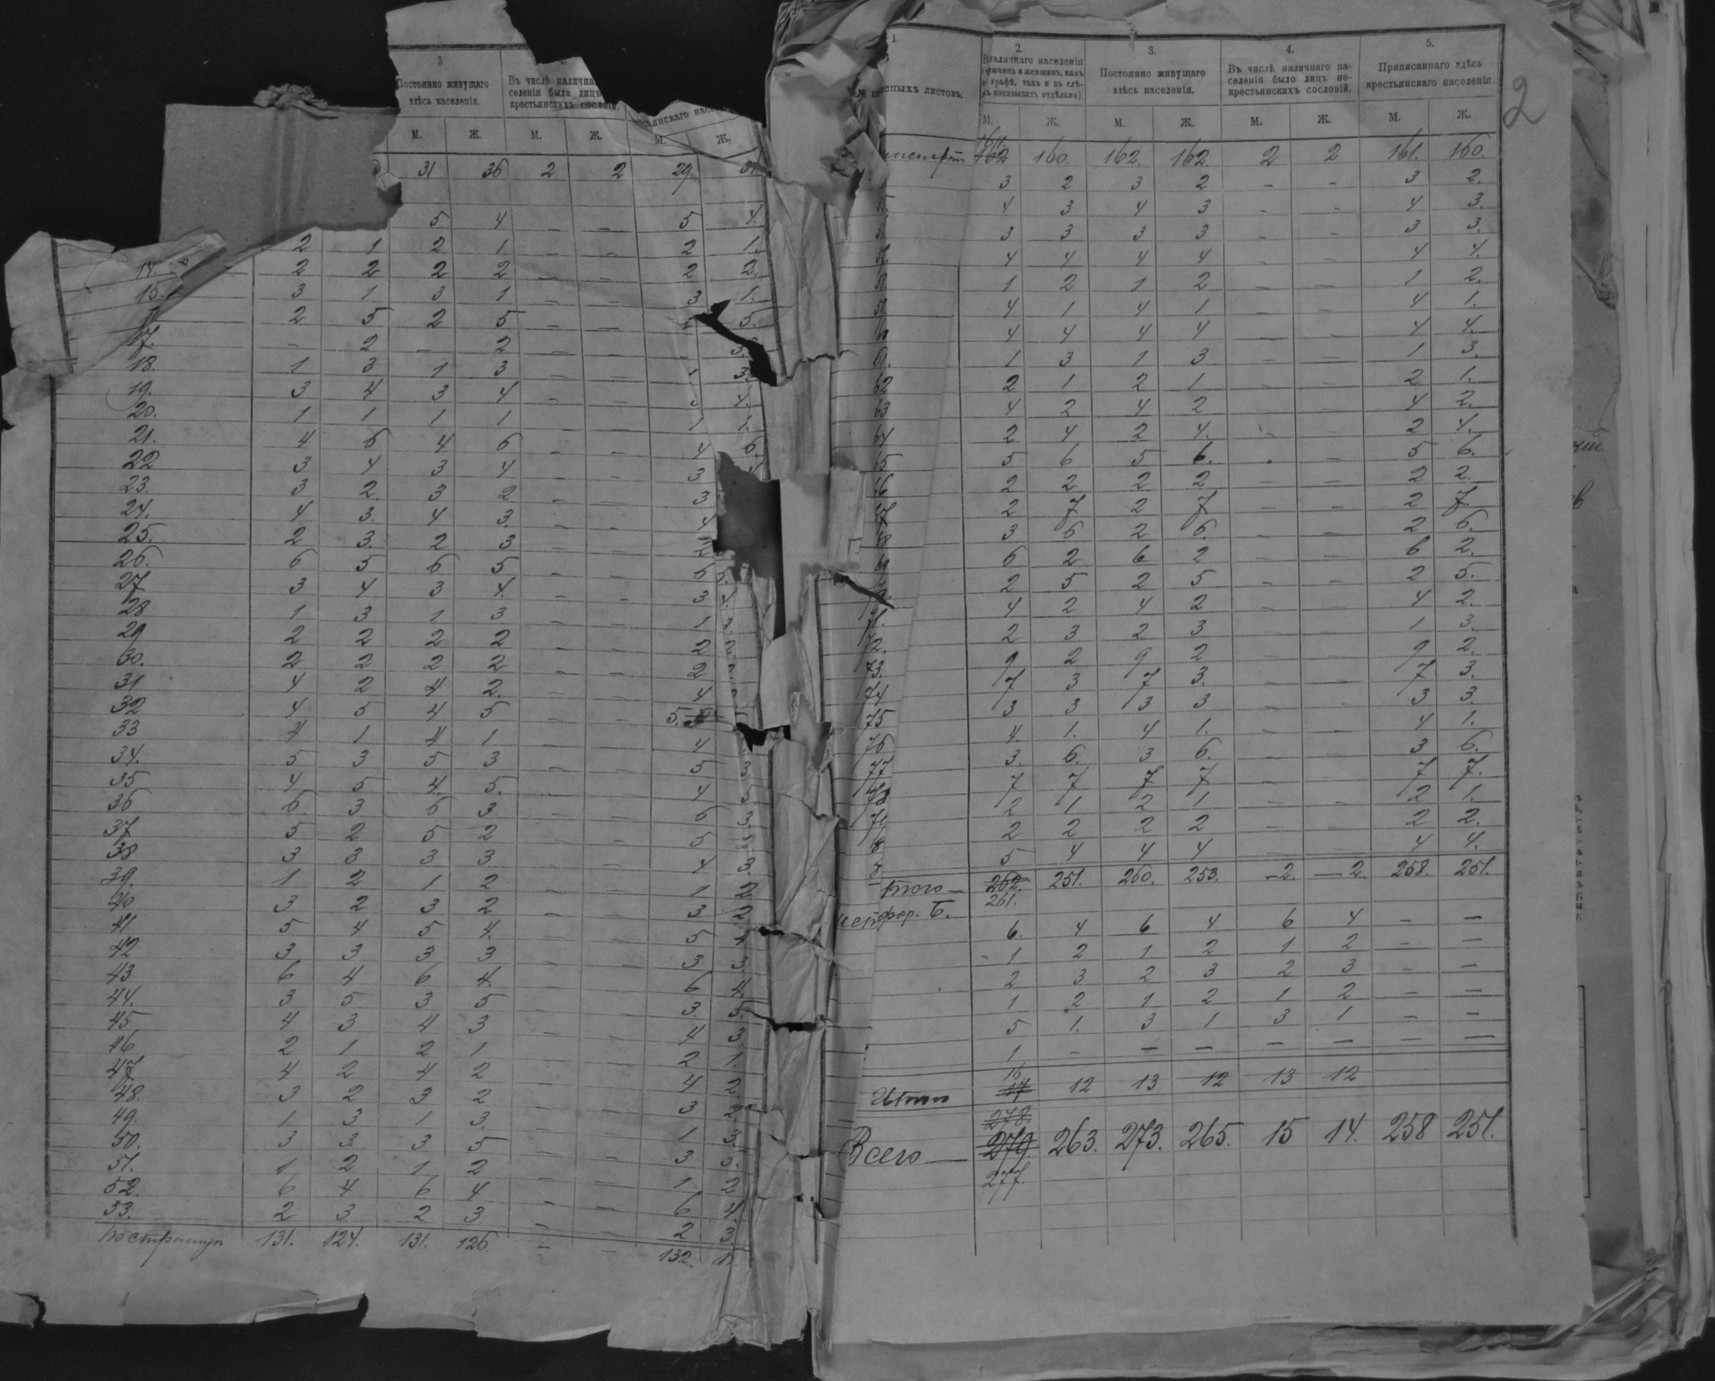 3
Постоянно живущаго
здѣсь населенія.
Въ числѣ наличн
селенія было лицъ
крестьянскихъ сословій.
М. Ж. М. Ж. М. Ж.
31 36 2 2 29
5 4 — — 5 4.
2 1 2 1 — — 2 1.
14. 2 2 2 2 — — 2 2.
15. 3 1 3 1 — — 3 1.
2 5 2 5 — — 5.
17. — 2 — 2 — —
18. 1 3 1 3 — — 3.
19. 3 4 3 4 — — 4.
20. 1 1 1 1 — — 1.
21. 4 6 4 6 — — 4 6.
22 3 4 3 4 — — 3
23. 3 2. 3 2 — — 3
24. 4 3. 4 3. — — 4
25. 2 3. 2 3 — — 2
26. 6 5 6 5 — — 6
27 3 4 3 4. — — 3
28 1 3 1 3 — — 1
29 2 2 2 2 — — 2
30. 2 2 2 2 — — 2
31 4 2 4 2. — — 4
32 4 5 4 5 — — 5.
33 4 1 4 1 — — 4
34. 5 3 5 3 — — 5 3
35 4 5 4 5. — — 4
36 6 3 6 3 — — 6 3
37 5 2 5 2 — — 5
38 3 3 3 3 — — 4 3
39. 1 2 1 2 — — 1 2
40 3 2 3 2 — — 3 2
41 5 4 5 4. — — 5
42 3 3 3 3 — — 3 3
43 6 4 6 4. — — 6 4.
44. 3 5 3 5 — — 3. 5.
45 4 3 4 3 — — 4 3.
46 2 1 2 1 — — 2. 1.
47 4 2 4 2 — — 4 2.
48. 3 2 3 2 — — 3 2.
49. 1 3 1 3. — — 1 3.
50. 3 3 3 5 — — 3 3.
51. 1 2 1 2 — — 1 2
52. 6 4 6 4 — — 6 4
53. 2 3 2 3 — — 2 3.
По страницѣ 131. 124. 131. 126. — — 132.
2
1. 2. 3. 4. 5.
Наличнаго населенія
Постоянно живущаго
здѣсь населенія.
Въ числѣ наличнаго на-
селенія было лицъ не-
крестьянскихъ сословій.
Приписаннаго здѣсь
крестьянскаго населенія.
М. Ж. М. Ж. М. Ж. М. Ж.
162 160. 162. 162. 2 2 161. 160.
3 2 3 2 - - 3 2.
4 3 4 3 - - 4 3.
3 3 3 3 - - 3 3.
4 4 4 4 - - 4 4.
1 2 1 2 - - 1 2.
4 1 4 1 - - 4 1.
4 4 4 4 - - 4 4.
1 3 1 3 - - 1 3.
62 2 1 2 1 - - 2 1.
63 4 2 4 2 - - 4 2.
64 2 4 2 4. - - 2 4.
65 5 6 5 6. - - 5 6.
2 2 2 2 - - 2 2.
2 7 2 7 - - 2 7.
3 6 2 6. - - 2 6.
6 2 6 2 - - 6 2.
2 5 2 5 - - 2 5.
71. 4 2 4 2 - - 4 2.
72. 2 3 2 3 - - 1 3.
73. 9 2 9 2 - - 9 2.
74 7 3 7 3. - - 7 3.
75 3 3 3 3 - - 3 3.
76 4. 1. 4 1. - - 4 1.
77 3. 6. 3 6. - - 3 6.
78 7 7 7 7 - - 7 7.
79 2 1 2 1 - - 2 1.
2 2 2 2 - - 2 2.
5 4 4 4 - - 4 4.
Итого — 262. 251. 260. 253. —2. —2. 258. 251.
261.
фор. Б.
6. 4 6 4 6 4 — —
1 2 1 2 1 2 — —
2 3 2 3 2 3 — —
1 2 1 2 1 2 — —
5 1. 3 1 3 1 — —
1 — — — — — — —
16
Итого 17 12 13 12 13 12
278.
Всего — 279 263. 273. 265. 15 14. 258 251.
277.